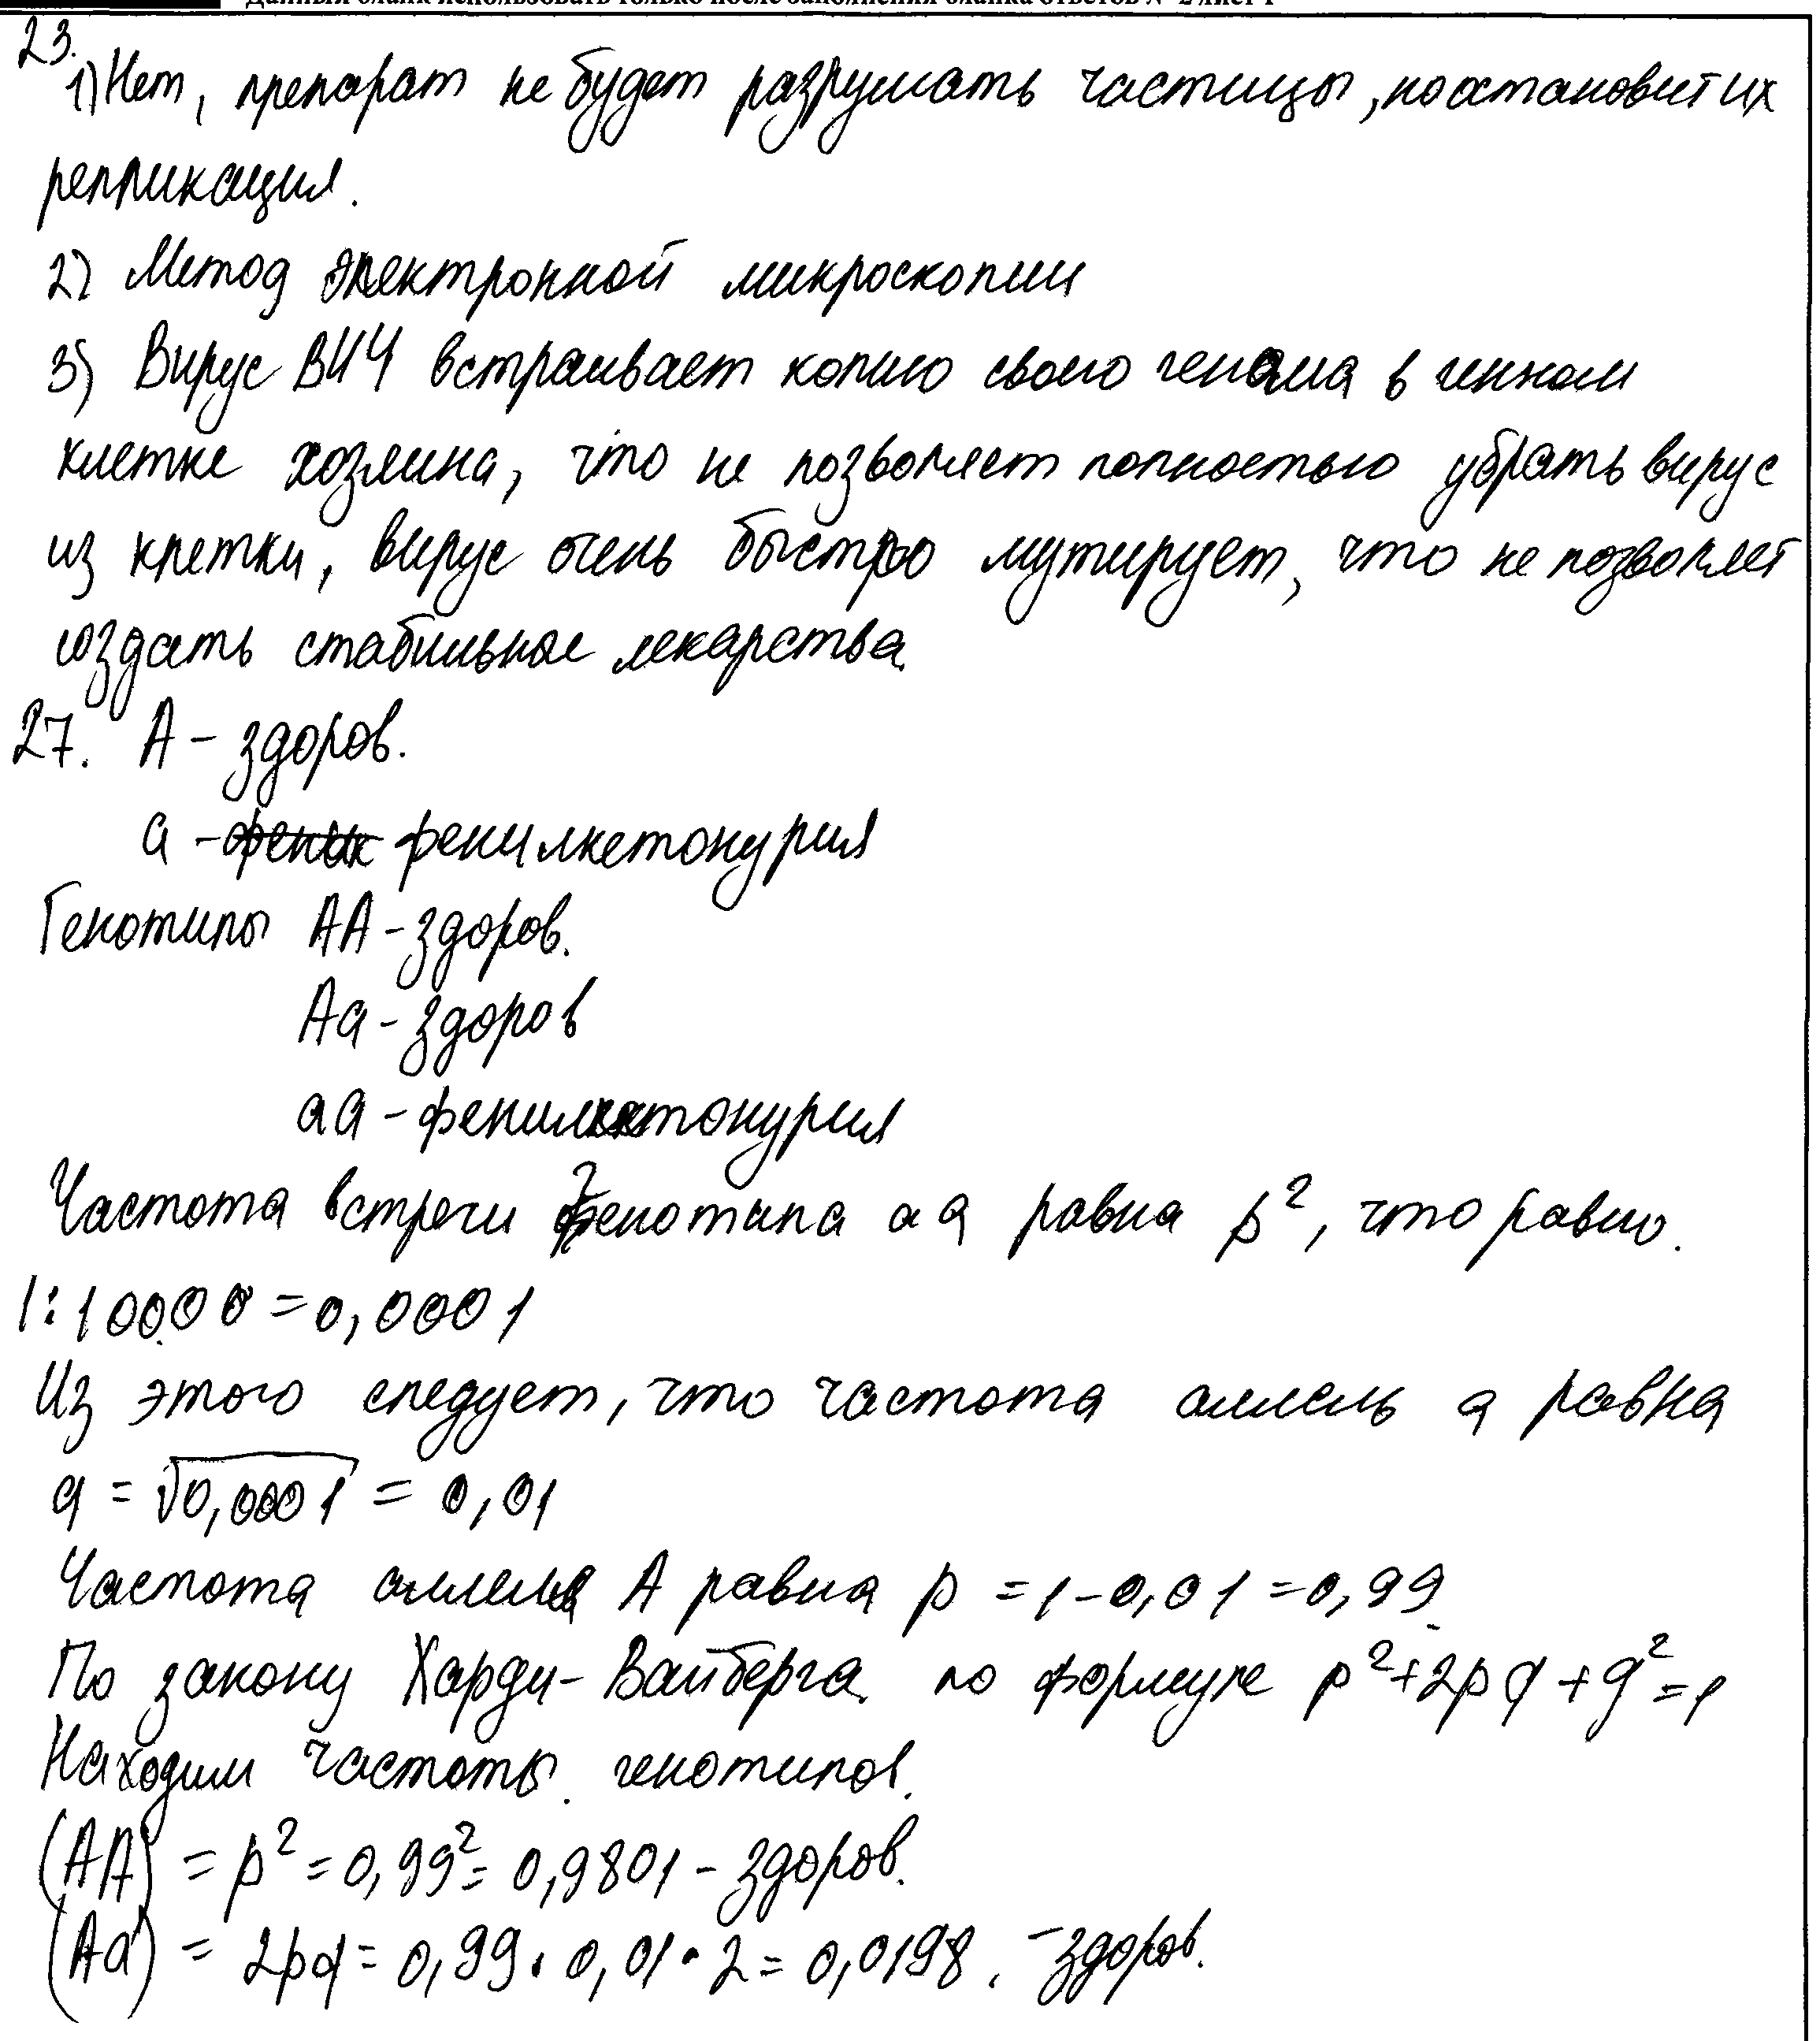 Данный бланк использовать только после заполнения бланка ответов № 2 лист 1
23.
1) Нет, препарат не будет разрушать частицы, но остановит их
репликация.
2) Метод электронной микроскопии
3) Вирус ВИЧ встраивает копию своего генома в геном
клетке хозяина, что не позволяет полностью убрать вирус
из клетки, вирус очень быстро мутирует, что не позволяет
создать стабильные лекарства
27. А - здоров.
а - фенилкетонурия
Генотипы АА - здоров.
Аа - здоров
аа - фенилкетонурия
Частота встречи генотипа аа равна p², что равно.
1:10000 = 0,0001
Из этого следует, что частота аллель а равна
q = √0,0001 = 0,01
Частота аллеля А равна p = 1 - 0,01 = 0,99.
По закону Харди-Вайберга по формуле p²+2pq+q²=1
Находим частоты генотипов.
(АА) = p² = 0,99² = 0,9801 - здоров.
(Аа) = 2pq = 0,99 · 0,01 · 2 = 0,0198. - здоров.